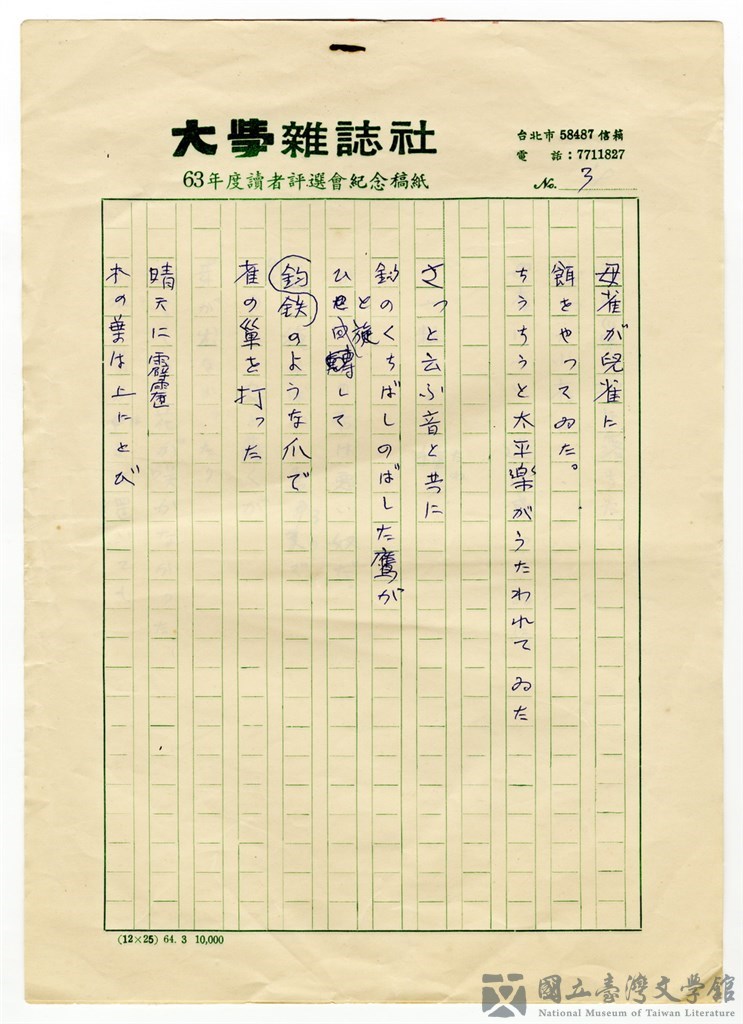 大學雜誌社
63年度讀者評選會紀念稿紙
台北市 58487 信箱
電 話:7711827
No. 3
母雀が児雀に
餌をやってゐた。
ちうちうと太平楽がうたわれてゐた
さっと云ふ音と共に
釣のくちばしのばした鷹が
ひと旋轉して
釣鉄のような爪で
雀の巣を打った
晴天に霹靂
木の葉は上にとび
(12×25) 64. 3 10,000
國立臺灣文學館
National Museum of Taiwan Literature